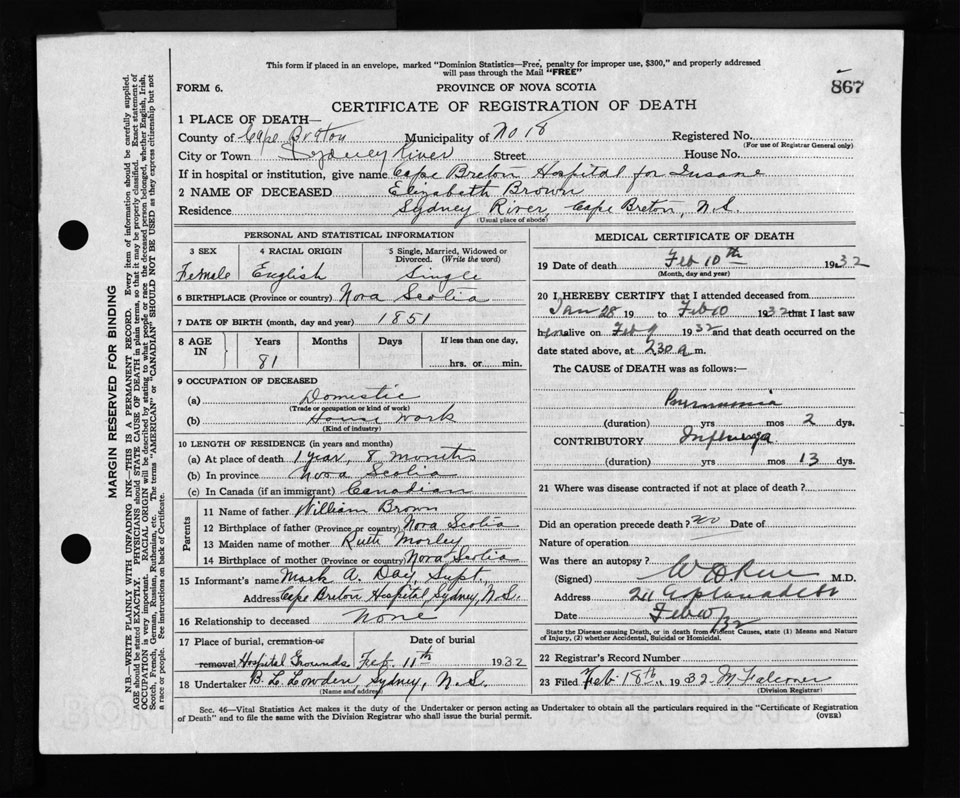 This form if placed in an envelope, marked "Dominion Statistics—Free, penalty for improper use, $300," and properly addressed
will pass through the Mail "FREE"
867
FORM 6.
PROVINCE OF NOVA SCOTIA
CERTIFICATE OF REGISTRATION OF DEATH
1 PLACE OF DEATH—
County of Cape Breton Municipality of No 18 Registered No.
(For use of Registrar General only)
City or Town Sydney River Street House No.
If in hospital or institution, give name Cape Breton Hospital for Insane
2 NAME OF DECEASED Elizabeth Brown
Residence Sydney River, Cape Breton, N.S.
(Usual place of abode)
PERSONAL AND STATISTICAL INFORMATION
3 SEX 4 RACIAL ORIGIN 5 Single, Married, Widowed or
Divorced. (Write the word)
Female English Single
6 BIRTHPLACE (Province or country) Nova Scotia
7 DATE OF BIRTH (month, day and year) 1851
8 AGE IN Years Months Days If less than one day,
81 hrs. or min.
9 OCCUPATION OF DECEASED
(a) Domestic
(Trade or occupation or kind of work)
(b) House work
(Kind of industry)
10 LENGTH OF RESIDENCE (in years and months)
(a) At place of death 1 year, 8 months
(b) In province Nova Scotia
(c) In Canada (if an immigrant) Canadian
Parents
11 Name of father William Brown
12 Birthplace of father (Province or country) Nova Scotia
13 Maiden name of mother Ruth Morley
14 Birthplace of mother (Province or country) Nova Scotia
15 Informant's name Mark A. Day, Supt.
Address Cape Breton Hospital, Sydney, N.S.
16 Relationship to deceased None
17 Place of burial, cremation or Date of burial
removal Hospital Grounds Feb. 11th 1932
18 Undertaker B. L. Lowden, Sydney, N.S.
(Name and address)
MEDICAL CERTIFICATE OF DEATH
19 Date of death Feb 10th 1932
(Month, day and year)
20 I HEREBY CERTIFY that I attended deceased from
Jan 28 19 to Feb 10 1932 that I last saw
her alive on Feb 9 1932 and that death occurred on
date stated above, at 230 a m.
The CAUSE of DEATH was as follows:—
Pneumonia
(duration) yrs mos 2 dys.
CONTRIBUTORY Influenza
(duration) yrs mos 13 dys.
21 Where was disease contracted if not at place of death?
Did an operation precede death? no Date of
Nature of operation
Was there an autopsy?
(Signed) M.D.
Address 211 Esplanade St
Date Feb 10/32
State the Disease causing Death, or in death from Violent Causes, state (1) Means and Nature
of Injury, (2) whether Accidental, Suicidal or Homicidal.
22 Registrar's Record Number
23 Filed Feb 18th 1932 M Falconer
(Division Registrar)
Sec. 46—Vital Statistics Act makes it the duty of the Undertaker or person acting as Undertaker to obtain all the particulars required in the "Certificate of Registration
of Death" and to file the same with the Division Registrar who shall issue the burial permit.
(OVER)
MARGIN RESERVED FOR BINDING
N.B.—WRITE PLAINLY WITH UNFADING INK—THIS IS A PERMANENT RECORD. Every item of information should be carefully supplied.
AGE should be stated EXACTLY. PHYSICIANS should STATE CAUSE OF DEATH in plain terms, so that it may be properly classified. Exact statement of
OCCUPATION is very important. RACIAL ORIGIN will be described by stating to what people or race the deceased person belonged, whether English, Irish,
Scotch, French, German, Russian, Ruthenian, etc. The terms "AMERICAN" or "CANADIAN" SHOULD NOT BE USED as they express citizenship but not
a race or people. See instructions on back of Certificate.